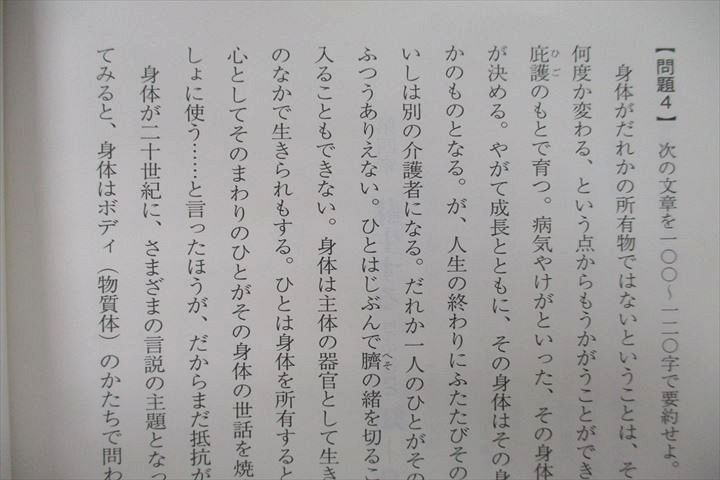 【問題4】 次の文章を一〇〇～一二〇字で要約せよ。
身体がだれかの所有物ではないということは、そ
何度か変わる、という点からもうかがうことができ
庇護のもとで育つ。病気やけがといった、その身体
ひご
が決める。やがて成長とともに、その身体はその身
かのものとなる。が、人生の終わりにふたたびその
いしは別の介護者になる。だれか一人のひとがその
ふつうありえない。ひとはじぶんで臍の緒を切るこ
へそ
入ることもできない。身体は主体の器官として生き
のなかで生きられもする。ひとは身体を所有すると
心としてそのまわりのひとがその身体の世話を焼
しょに使う……と言ったほうが、だからまだ抵抗が
身体が二十世紀に、さまざまの言説の主題となっ
てみると、身体はボディ（物質体）のかたちで問わ